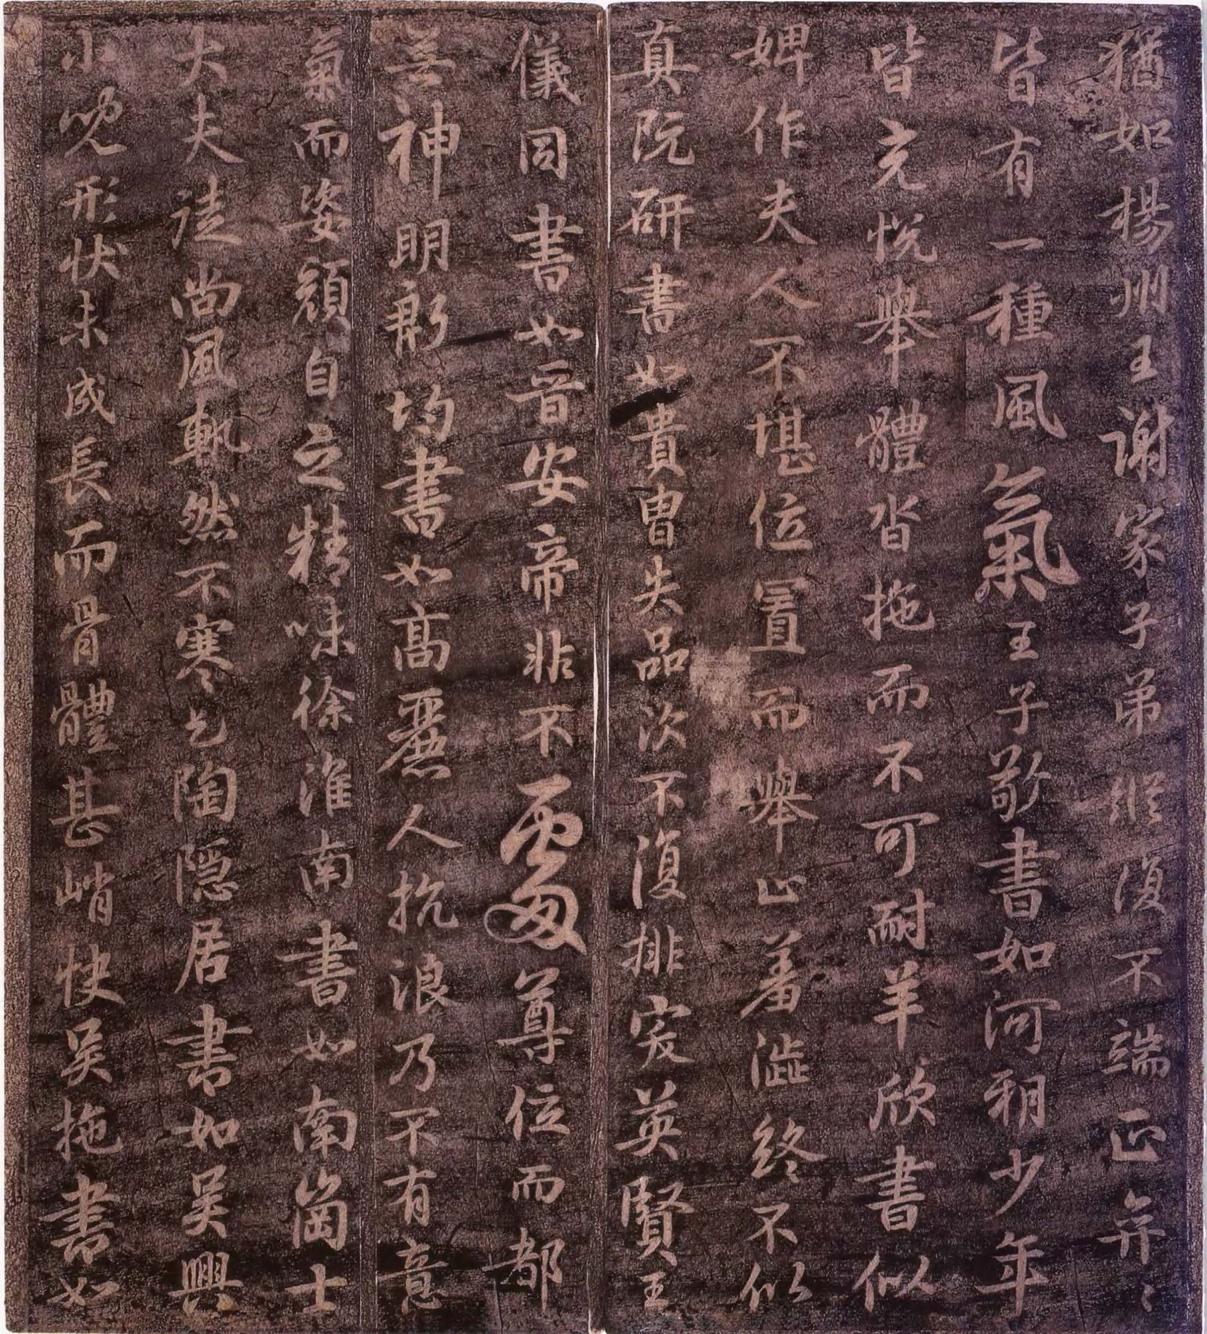 猶如楊州王謝家子弟縱復不端正弈〻
皆有一種風氣王子敬書如河朔少年
皆充悅舉體沓拖而不可耐羊欣書似
婢作夫人不堪位置而舉止羞澁終不似
真阮研書如貴胄失品次不復排突英賢王
儀同書如晉安帝非不處尊位而都
無神明殷均書如高麗人抗浪乃不有意
氣而姿顏自乏精味徐淮南書如南崗士
大夫徒尚風軌然不寒乞陶隱居書如吳興
小兒形狀未成長而骨體甚峭快吳拖書如